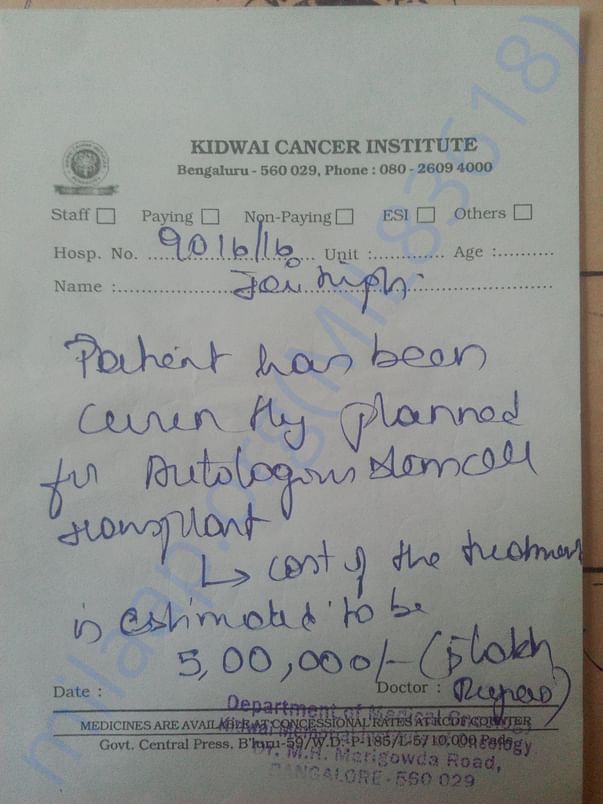 KIDWAI CANCER INSTITUTE
Bengaluru - 560 029, Phone : 080 - 2609 4000
Staff Paying Non-Paying ESI Others
Hosp. No. 9016/16 Unit : Age :
Name : Jai
Patient has been
currently planned
for Autologous stem cell
transplant
↳ cost of the treatment
is estimated to be
5,00,000/- (5 lakh
Rupees)
Date : Doctor :
Department of Medical Oncology
MEDICINES ARE AVAILABLE AT CONCESSIONAL RATES AT KCDF COUNTER
Kidwai Memorial Oncology
Govt. Central Press, B'luru-59/W.D.-P-185/L-5/10,000 Pads
Dr. M.H. Marigowda Road,
BANGALORE - 560 029
milaap.org(MIL83618)